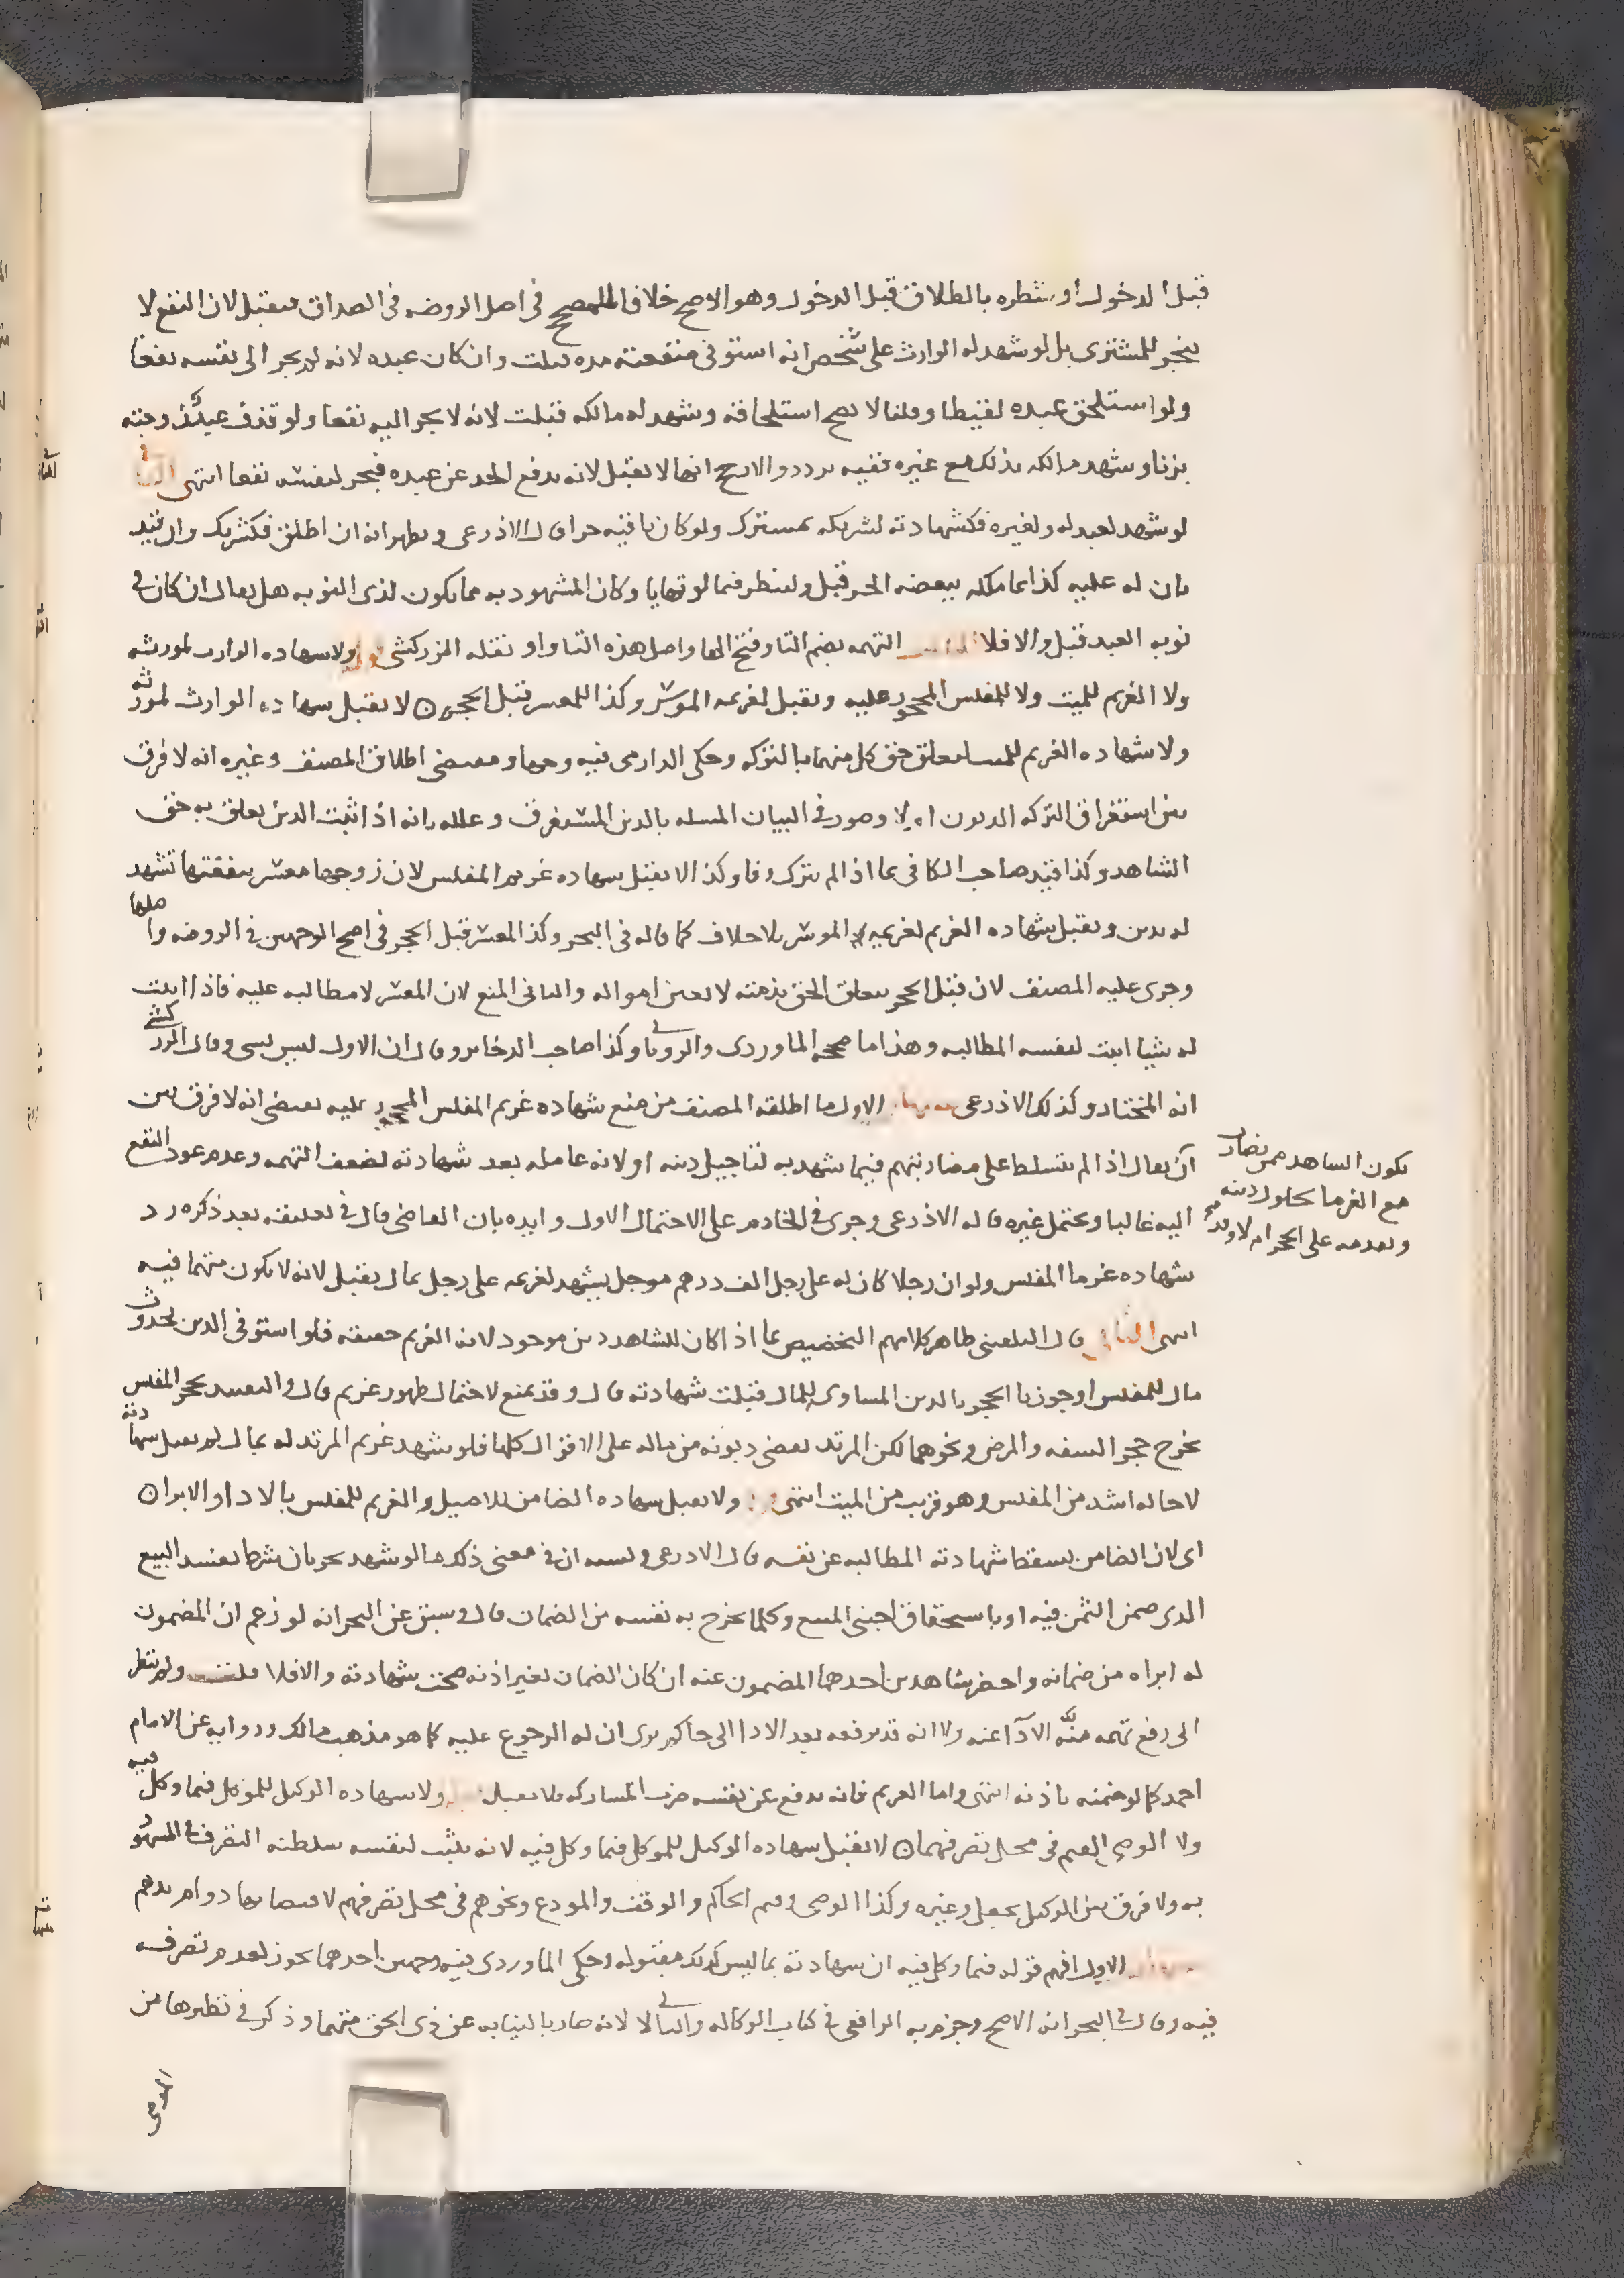 قبل الدخول او شطره بالطلاق قبل الدخول وهو الاصح خلاف المصحح فى اصل الروضه فى الصداق فيقبل لان النفع لا
ينجر للمشترى بل لو شهد له الوارث على شخص انه استوفى منفعته مده قبلت وان كان عبده لانه لم يجر الى نفسه نفعا
ولو استلحق عبده لقيطا وقلنا لا يصح استلحاقه وشهد له مالكه قبلت لانه لا يجر اليه نفعا ولو قذف عبد زوجته
بزنا وشهد مالكه بذلك مع غيره ففيه تردد والارجح انها لا تقبل لانه يدفع الحد عن عبده فيجر لنفسه نفعا انتهى
لو شهد لعبد له ولغيره فكشهادته لشريكه بمشترك ولو كان باقيه حرا قال الاذرعى ويظهر انه ان اطلق فكشريك وان قيد
بان له عليه كذا مما ملكه ببعضه الحر قبل ولينظر فيما لو تهايا وكان المشهود به مما يكون لذى النوبه هل يقال ان كان فى
نوبه العبد قبل والا فلا التهمه بضم التا وفتح الها واصل هذه التا واو نقله الزركشى ولا شهاده الوارث لمورثه
ولا الغريم للميت ولا للمفلس المحجور عليه وتقبل لغريمه الموسر وكذا المعسر قبل الحجر لا تقبل شهاده الوارث لمورثه
ولا شهاده الغريم للميت لتعلق حق كل منهما بالتركه وحكى الدارمى فيه وجها ومقتضى اطلاق المصنف وغيره انه لا فرق
بين استغراق التركه الديون ام لا وصور فى البيان المسله بالدين المستغرق وعلله بانه اذا ثبت الدين تعلق به حق
الشاهد وكذا قيد صاحب الكافى بما اذا لم يترك وفا وكذا لا تقبل شهاده غريم المفلس لان زوجها معسر بنفقتها تشهد
له بدين وتقبل شهاده الغريم لغريمه الموسر بلا خلاف كما قاله فى البحر وكذا المعسر قبل الحجر فى اصح الوجهين فى الروضه واصلها
وجرى عليه المصنف لان قبل الحجر يتعلق الحق بذمته لا بعين امواله والثانى المنع لان المعسر لا مطالبه عليه فاذا اثبت
له شيا اثبت لنفسه المطالبه وهذا ما صححه الماوردى والرويانى وكذا صاحب الدخاير وقال ان الاول ليس بشى وقال الزركشى
انه المختار وكذلك الاذرعى الاول ما اطلقه المصنف من منع شهاده غريم المفلس المحجور عليه يقتضى انه لا فرق بين
ان يقال اذا لم يتسلط على مضاربتهم فيما شهد به لتاجيل دينه او لانه عامله بعد شهادته لضعف التهمه وعدم عود النفع
اليه غالبا ويحتمل غيره قاله الاذرعى وجرى فى الخادم على الاحتمال الاول وايده بان القاضى قال فى تعليقه بعد ذكره رد
شهاده غرما المفلس ولو ان رجلا كان له على رجل الف درهم موجل يشهد لغريمه على رجل بمال يقبل لانه لا يكون متهما فيه
انتهى الثانى قال البلقينى ظاهر كلامهم التخصيص بما اذا كان للشاهد دين موجود لانه الغريم حقيقه فلو استوفى الدين بحدوث
مال للمفلس او جوزنا الحجر بالدين المساوى للمال قبلت شهادته قال وقد يمنع لاحتمال ظهور غريم قال والتقييد بحجر المفلس
يخرج حجر السفه والمرض ونحوهما لكن المرتد يقضى ديونه من ماله على الاقوال كلها فلو شهد غريم المرتد له بمال لم يقبل شهادته
لان حاله اشد من المفلس وهو قريب من الميت انتهى ولا تقبل شهاده الضامن للاصيل والغريم للمفلس بالادا او الابرا
اى لان الضامن يسقط بشهادته المطالبه عن نفسه قال الاذرعى ويشبه ان فى معنى ذلك ما لو شهد بجريان شرط يفسد البيع
الذى ضمن الثمن فيه او باستحقاق اجنبى المبيع وكلما يخرج به نفسه من الضمان قال وسبق عن البحر انه لو زعم ان المضمون
له ابراه من ضمانه واحضر شاهدين احدهما المضمون عنه ان كان الضمان بغير اذنه صحت شهادته والا فلا ولم ينظر
الى رفع تهمه منه الادا عنه ولا انه قد يرفعه بعد الادا الى حاكم يرى ان له الرجوع عليه كما هو مذهب مالك وروايه عن الامام
احمد كما لو ضمنه باذنه انتهى واما الغريم فانه يدفع عن نفسه ضرب المشاركه فلا تقبل ولا شهاده الوكيل للموكل فيما وكل فيه
ولا الوصى والقيم فى محل تصرفهما لا تقبل شهاده الوكيل للموكل فيما وكل فيه لانه يثبت لنفسه سلطنه التصرف فى المشهود
به ولا فرق بين الوكيل بجعل وغيره وكذا الوصى وقيم الحاكم والوقف والمودع ونحوهم فى محل تصرفهم لاقتضايها دوام يدهم
الاول افهم قوله فيما وكل فيه ان شهادته بما ليس كذلك مقبوله وحكى الماوردى فيه وجهين احدهما يجوز لعدم تصرفه
فيه وقال فى البحر انه الاصح وجزم به الرافعى فى كتاب الوكاله والثانى لا لانه صار بالنيابه عن ذى الحق متهما وذكر فى نظيرها من
الوصى
يكون الشاهد ممن يضارب
مع الغرما بحلول دينه
وتقدمه على الحجر ام لا وقد